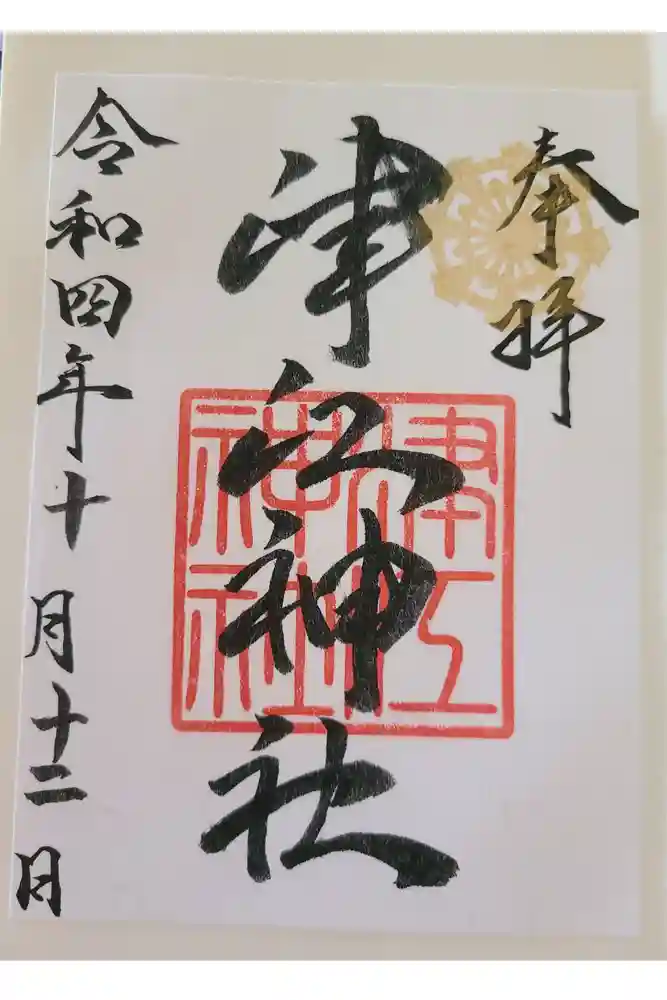 奉拝
津江神社
津江神社
令和四年十月十二日